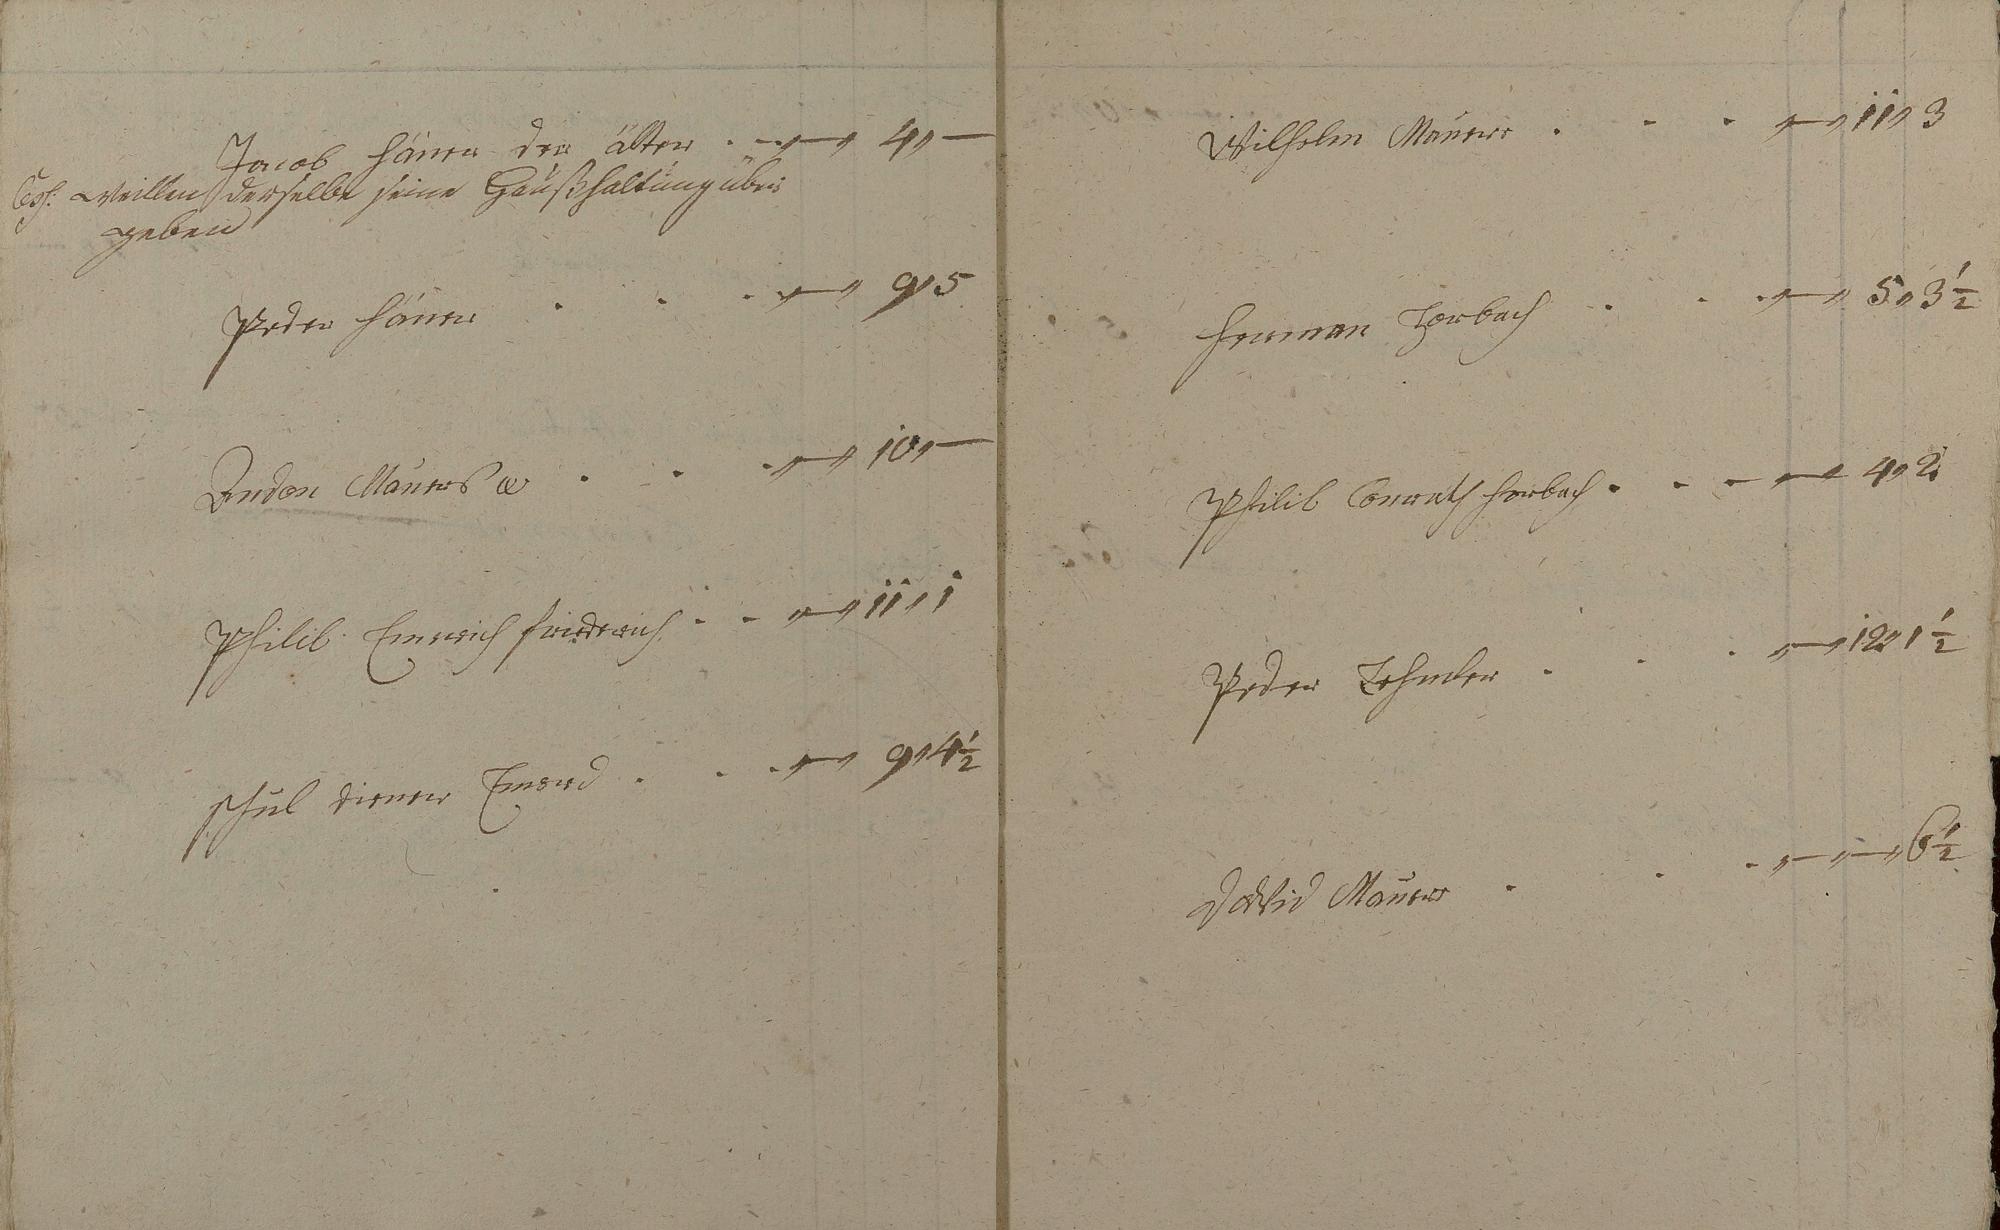 Jacob häner der älter . . „ — „ 4 „ —
Ces: weillen derselbe seine Haußhaltung über
geben
Peder häner . . . „ — „ 9 „ 5
Andon Mauers w . . . „ — „ 10 „ —
Philib Emrich friderich . . „ — „ 11 „ 1
schul diener Emerd . . . „ — „ 9 „ 4 ½
Wilhelm Maurer . . . „ — „ 11 „ 3
herman horbach . . . „ — „ 5 „ 3 ½
Philib Conrath horbach . . . „ — „ 4 „ 2
Peder Lehmler . . . „ — „ 12 „ 1 ½
David Maurer . . . „ — „ — „ 6 ½